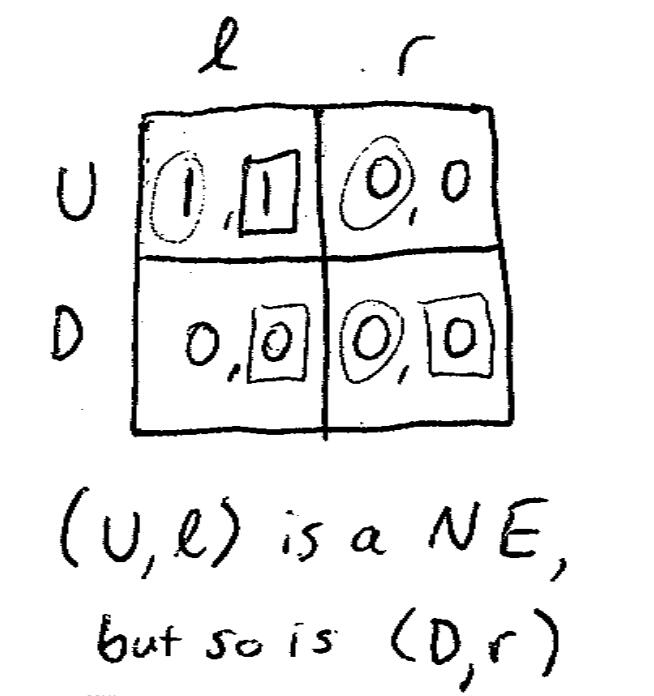 l r
U 1,1 0,0
D 0,0 0,0
(U,l) is a NE,
but so is (D,r)